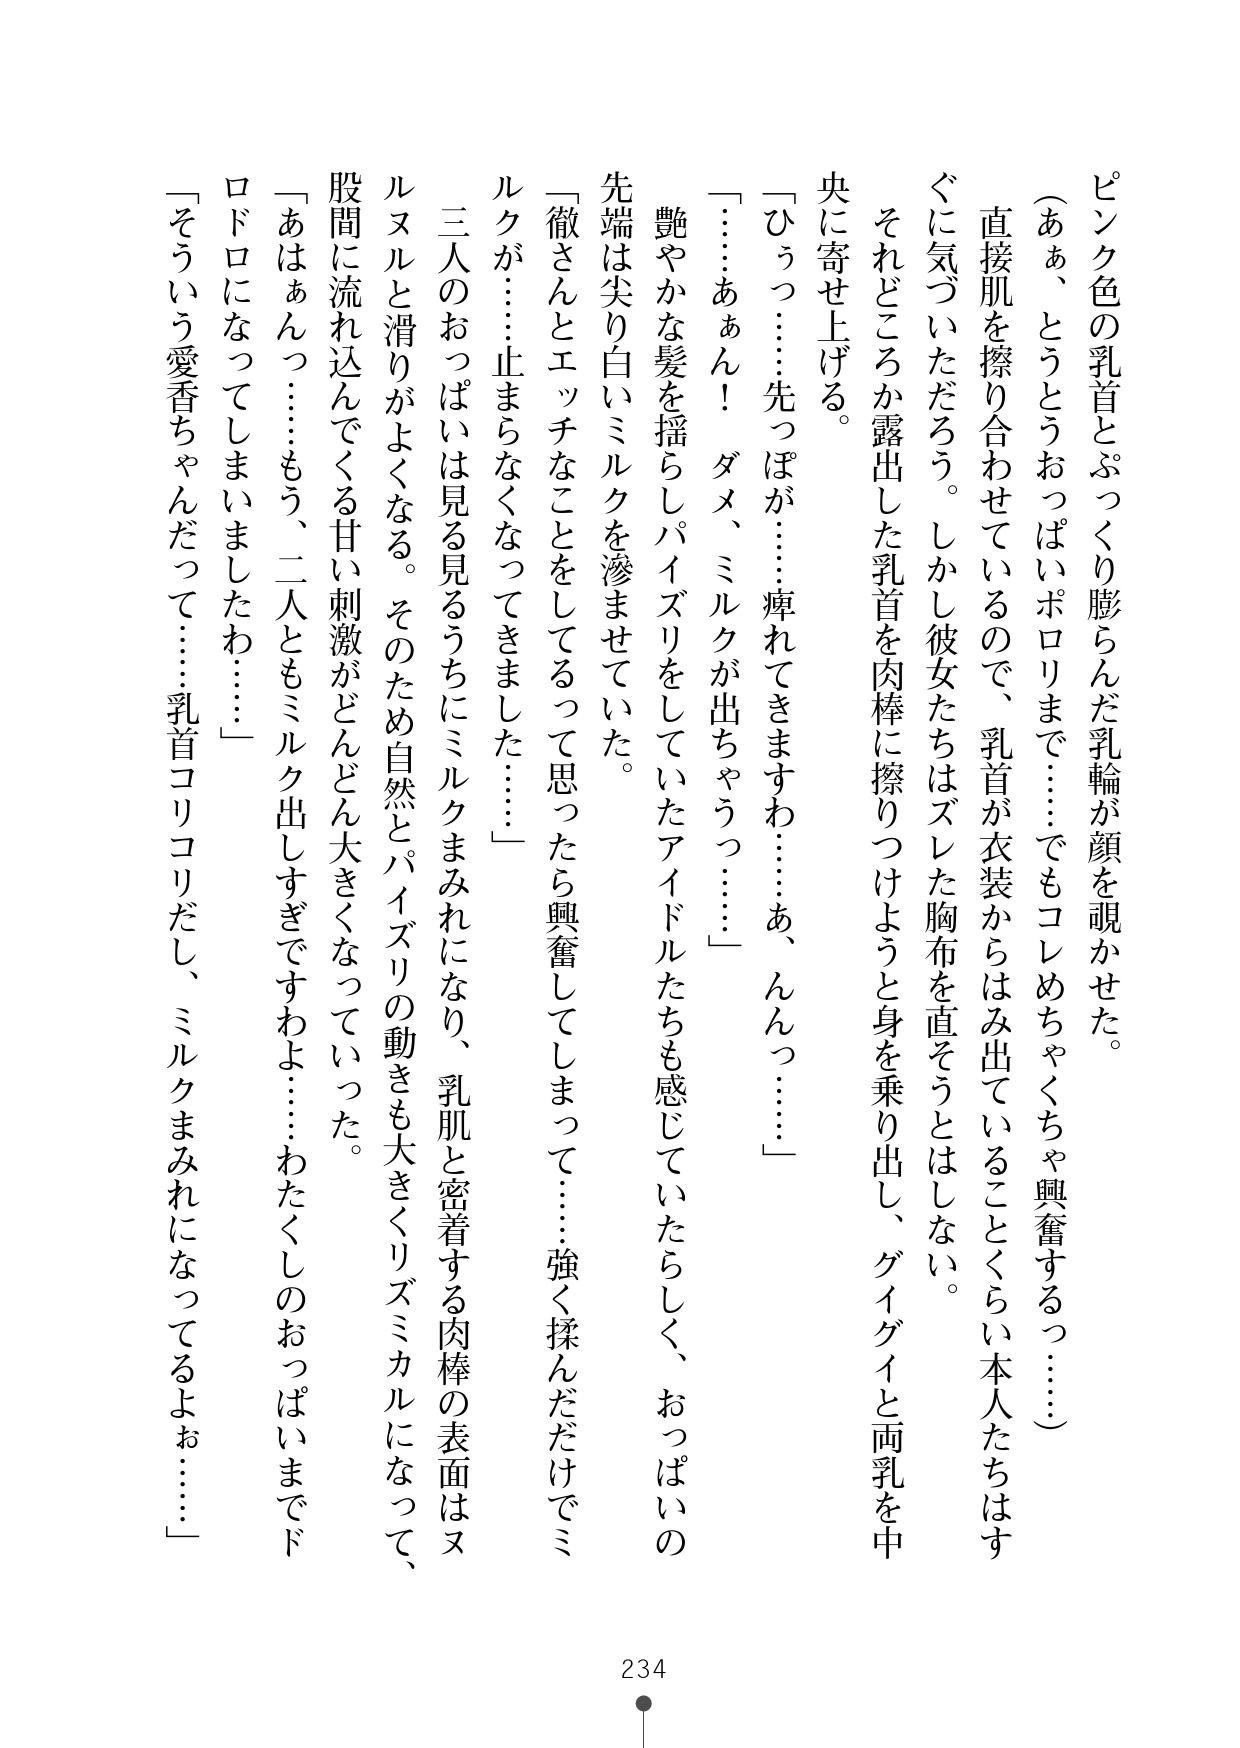 ピンク色の乳首とぷっくり膨らんだ乳輪が顔を覗かせた。
（あぁ、とうとうおっぱいポロリまで……でもコレめちゃくちゃ興奮するっ……）
　直接肌を擦り合わせているので、乳首が衣装からはみ出ていることくらい本人たちはす
ぐに気づいただろう。しかし彼女たちはズレた胸布を直そうとはしない。
　それどころか露出した乳首を肉棒に擦りつけようと身を乗り出し、グイグイと両乳を中
央に寄せ上げる。
「ひぅっ……先っぽが……痺れてきますわ……あ、んんっ……」
「……あぁん！　ダメ、ミルクが出ちゃうっ……」
　艶やかな髪を揺らしパイズリをしていたアイドルたちも感じていたらしく、おっぱいの
先端は尖り白いミルクを滲ませていた。
「徹さんとエッチなことをしてるって思ったら興奮してしまって……強く揉んだだけでミ
ルクが……止まらなくなってきました……」
　三人のおっぱいは見る見るうちにミルクまみれになり、乳肌と密着する肉棒の表面はヌ
ルヌルと滑りがよくなる。そのため自然とパイズリの動きも大きくリズミカルになって、
股間に流れ込んでくる甘い刺激がどんどん大きくなっていった。
「あはぁんっ……もう、二人ともミルク出しすぎですわよ……わたくしのおっぱいまでド
ロドロになってしまいましたわ……」
「そういう愛香ちゃんだって……乳首コリコリだし、ミルクまみれになってるよぉ……」
234